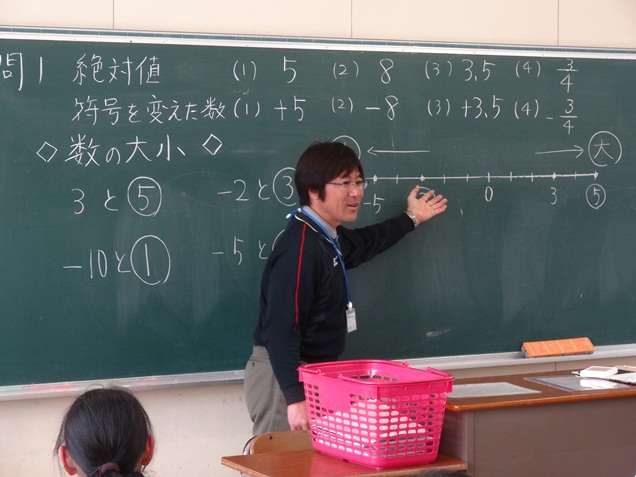 問1 絶対値 (1) 5 (2) 8 (3) 3.5 (4) 3/4
符号を変えた数 (1) +5 (2) -8 (3) +3.5 (4) -3/4
◇ 数の大小 ◇
大
3 と 5
-2 と 3
-5 0 3 5
-10 と 1
-5 と